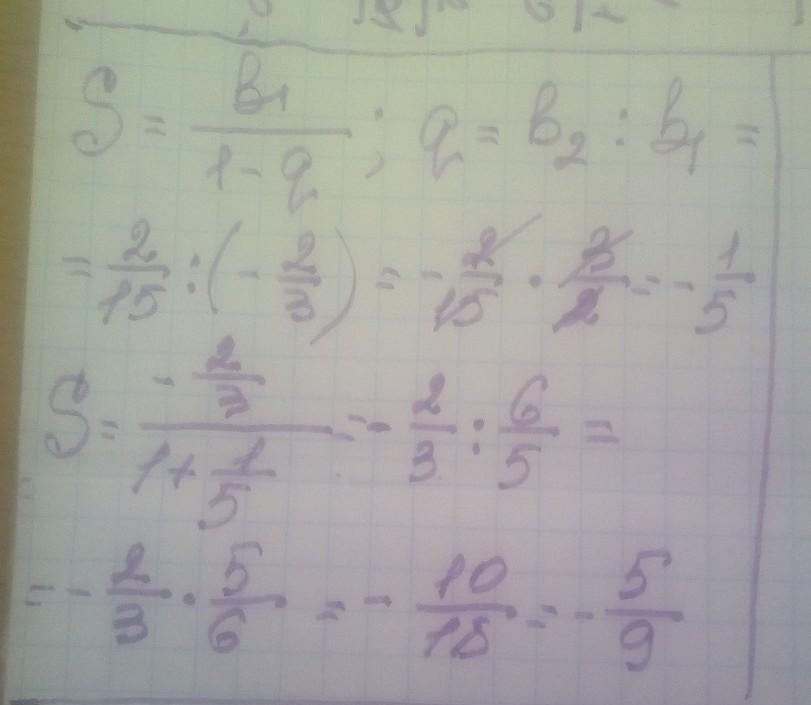 S = b₁/(1 - q) ; q = b₂ : b₁ =
= 2/15 : (- 2/3) = - 2/15 · 3/2 = - 1/5
S = (- 2/3)/(1 + 1/5) = - 2/3 : 6/5 =
= - 2/3 · 5/6 = - 10/18 = - 5/9